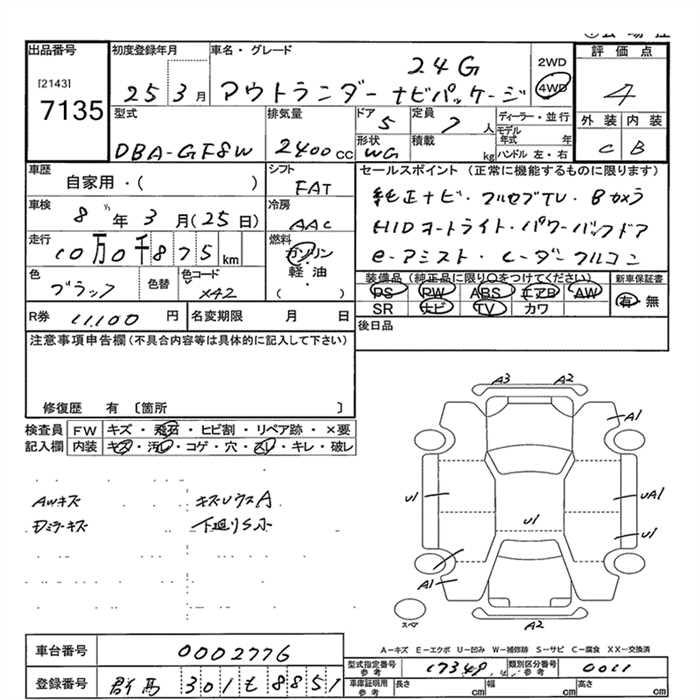 出品番号 初度登録年月 車名・グレード 2WD 評価点
[2143] 24G 4WD 4
7135 25 3月 アウトランダー ナビパッケージ
型式 排気量 ドア 定員 ディーラー・並行 外装 内装
5 7人 モデル年式 年
DBA-GF8W 2400cc 形状 積載 C B
WG kg ハンドル 左・右
車歴 シフト セールスポイント (正常に機能するものに限ります)
自家用・( ) FAT 純正ナビ・フルセグTV・Bカメラ
車検 冷房
8年3月(25日) AAC HIDオートライト・パワーバックドア
走行 燃料
10万0千875km ガソリン e-アシスト・レーダークルコン
軽油
色 色替 色コード ( ) 装備品(純正品に限り○をつけてください) 新車保証書
ブラック X42 PS PW ABS エアB AW 有・無
SR ナビ TV カワ
R券 11,100円 名変期限 月 日 後日品
注意事項申告欄(不具合内容等は具体的に記入して下さい)
修復歴 有 〔箇所 〕
検査員 FW キズ・飛石・ヒビ割・リペア跡・×要
記入欄 内装 キズ・汚レ・コゲ・穴・スレ・キレ・破レ
AWキズ キズUウスA
Dミラーキズ 下廻りSホ
A3 A2
A1
U1 UA1
U1 U1
A1
スペア A2
A-キズ E-エクボ U-凹み W-補修跡 S-サビ C-腐食 XX-交換済
車台番号 0002776
型式指定番号 参考 17349 類別区分番号 参考 0011
登録番号 群馬 301も8851
車庫証明用 参考 長さ cm 幅 cm 高さ cm